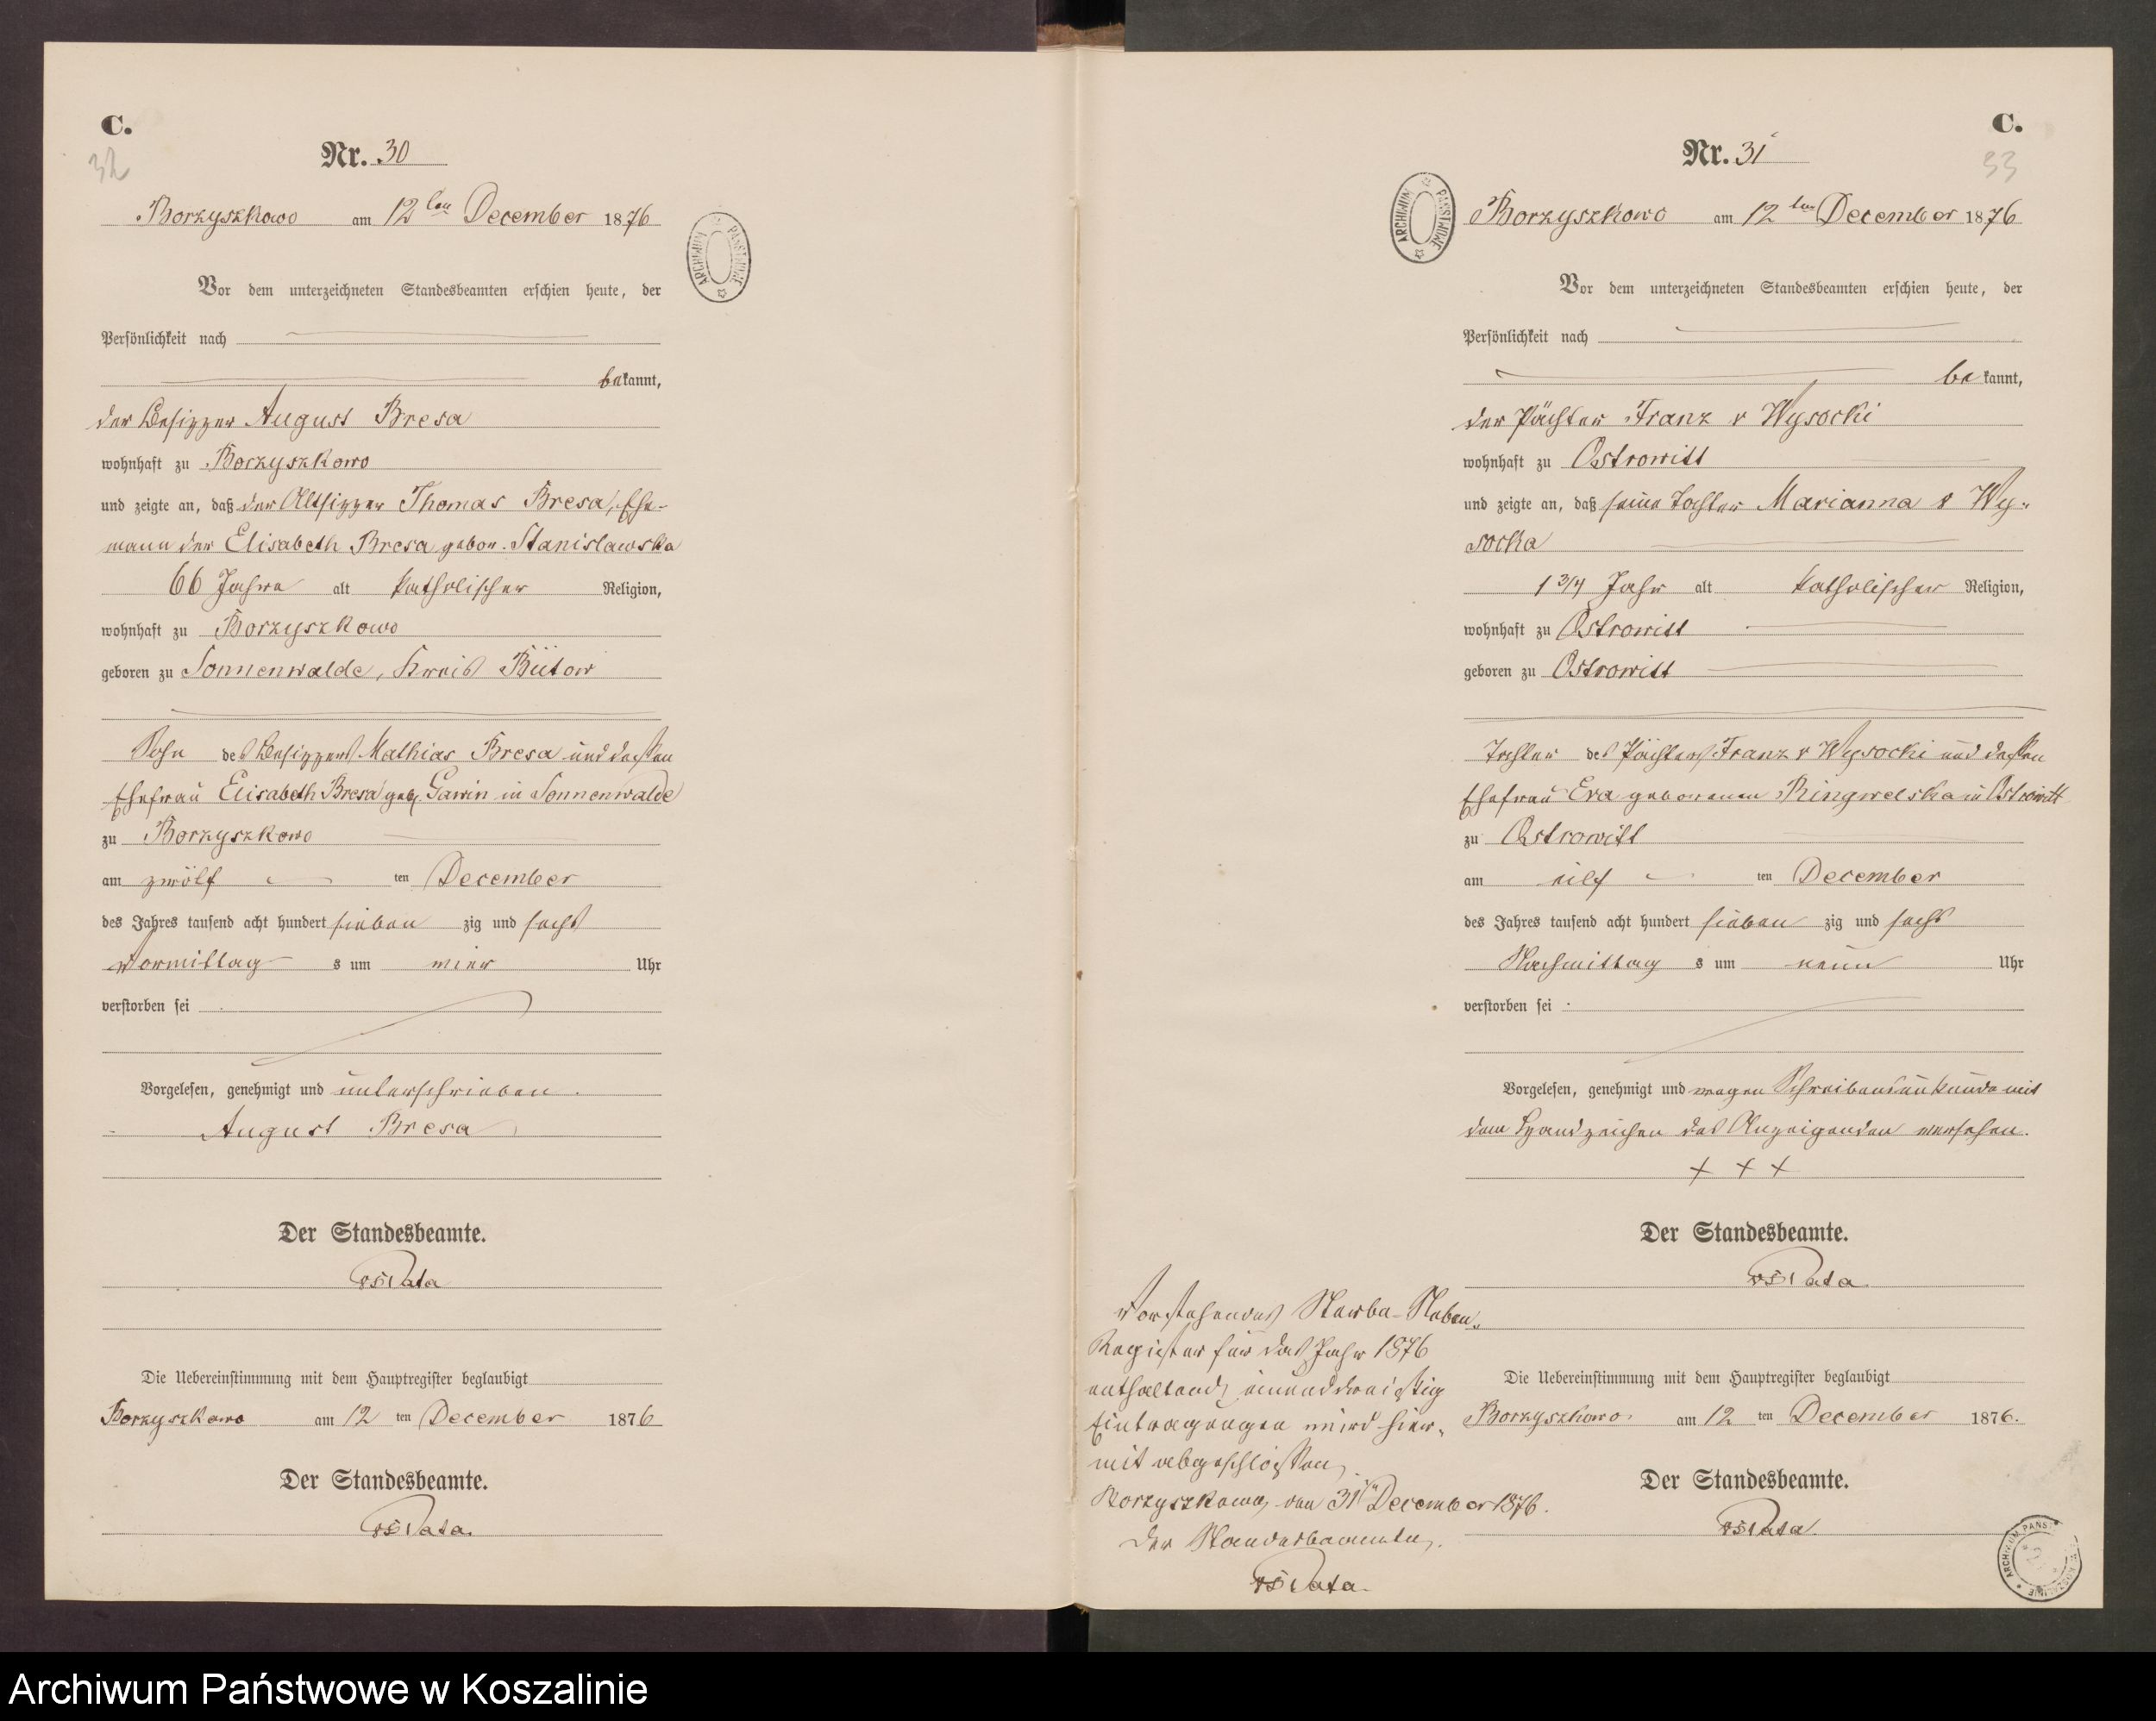 C.
32
Nr. 30
Borzyszkowo am 12ten December 1876
ARCHIWUM PAŃSTWOWE
Vor dem unterzeichneten Standesbeamten erschien heute, der
Persönlichkeit nach
bekannt,
der Besitzer August Bresa
wohnhaft zu Borzyszkowo
und zeigte an, daß der Altsitzer Thomas Bresa, Ehe-
mann der Elisabeth Bresa gebor. Stanislawska
66 Jahre alt katholischer Religion,
wohnhaft zu Borzyszkowo
geboren zu Sonnenwalde, Kreis Bütow
Sohn des Besitzers Mathias Bresa und dessen
Ehefrau Elisabeth Bresa geb. Gawin in Sonnenwalde
zu Borzyszkowo
am zwölf ten December
des Jahres tausend acht hundert sieben zig und sechs
Vormittag s um vier Uhr
verstorben sei
Vorgelesen, genehmigt und unterschrieben.
August Bresa
Der Standesbeamte.
Die Uebereinstimmung mit dem Hauptregister beglaubigt
Borzyszkowo am 12 ten December 1876
Der Standesbeamte.
C.
33
Nr. 31
ARCHIWUM PAŃSTWOWE
Borzyszkowo am 12ten December 1876
Vor dem unterzeichneten Standesbeamten erschien heute, der
Persönlichkeit nach
bekannt,
der Pächter Franz v Wysocki
wohnhaft zu Ostrowitt
und zeigte an, daß seine Tochter Marianna v Wy-
socka
1 3/4 Jahr alt katholischer Religion,
wohnhaft zu Ostrowitt
geboren zu Ostrowitt
Tochter des Pächters Franz v Wysocki und dessen
Ehefrau Eva geborenen Ringwelska in Ostrowitt
zu Ostrowitt
am eilf ten December
des Jahres tausend acht hundert sieben zig und sechs
Nachmittag s um neun Uhr
verstorben sei
Vorgelesen, genehmigt und wegen Schreibensunkunde mit
dem Handzeichen des Anzeigenden versehen.
+ + +
Der Standesbeamte.
Die Uebereinstimmung mit dem Hauptregister beglaubigt
Borzyszkowo am 12 ten December 1876.
Der Standesbeamte.
Vorstehendes Sterbe-Neben-
Register für das Jahr 1876
enthaltend einunddreißig
Eintragungen wird hier-
mit abgeschlossen
Borzyszkowo, den 31ten December 1876.
Der Standesbeamte.
Archiwum Państwowe w Koszalinie